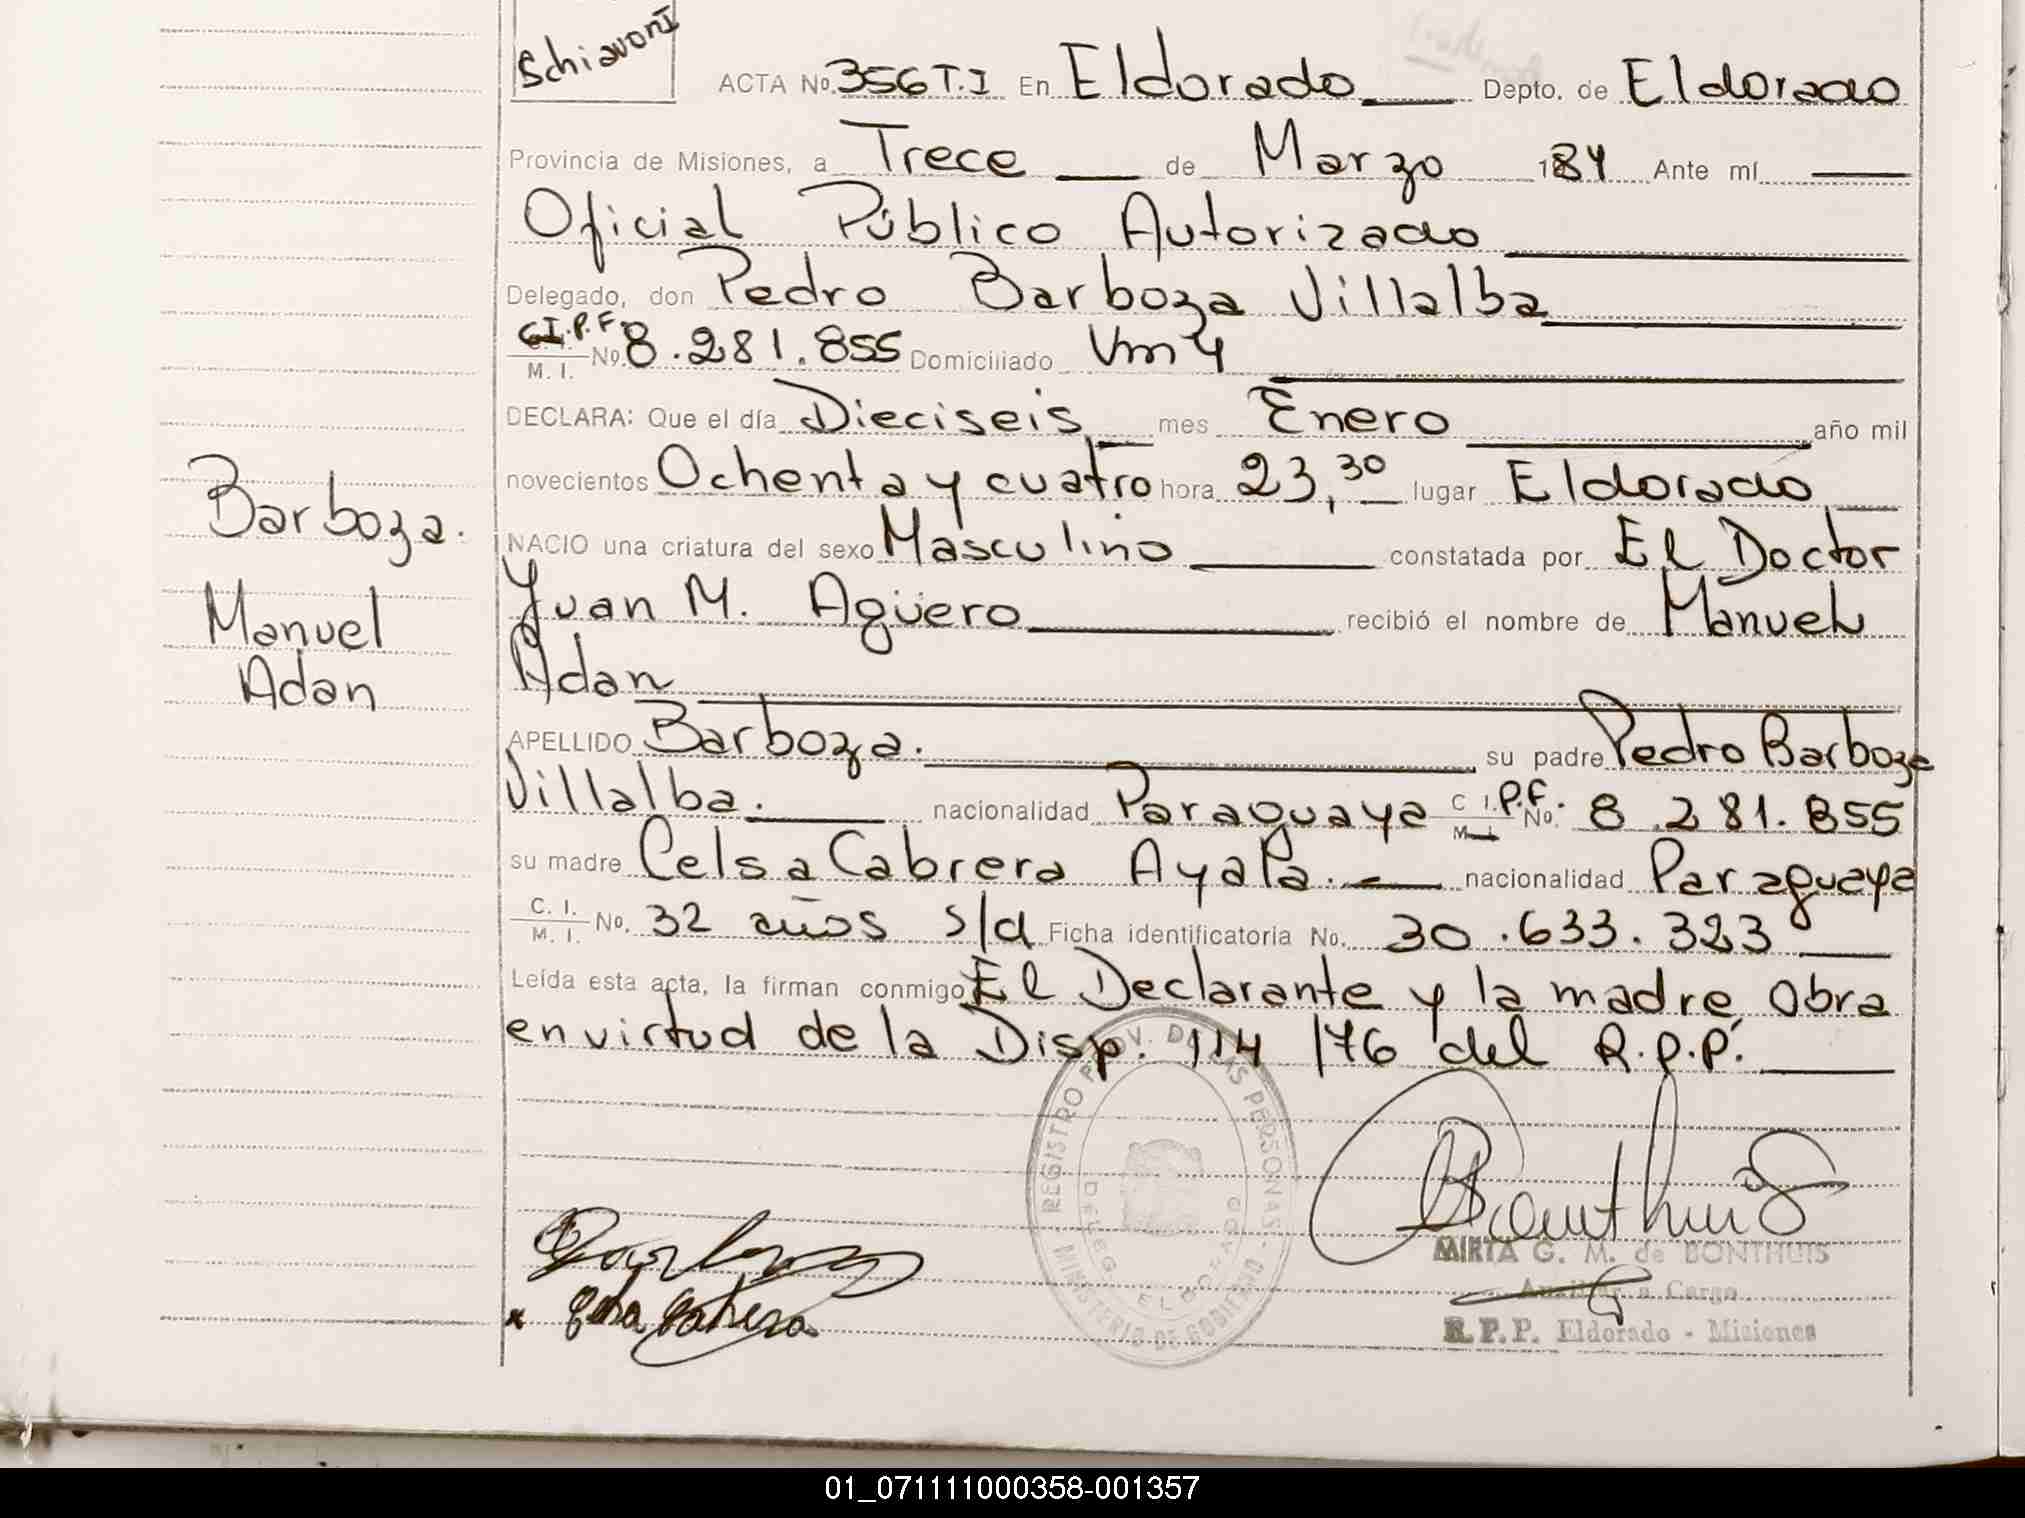 Schiavoni
ACTA No. 356 T.I En Eldorado Depto. de Eldorado
Provincia de Misiones, a Trece de Marzo 184 Ante mí
Oficial Público Autorizado
Delegado, don Pedro Barboza Villalba
C.I.P.F. M. I. No. 8.281.855 Domiciliado Vm 4
DECLARA: Que el día Dieciseis mes Enero año mil
novecientos Ochenta y cuatro hora 23,30 lugar Eldorado
NACIO una criatura del sexo Masculino constatada por El Doctor
Juan M. Agüero recibió el nombre de Manuel
Adan
APELLIDO Barboza. su padre Pedro Barboza
Villalba. nacionalidad Paraguaya C I.P.F. M. I. No. 8.281.855
su madre Celsa Cabrera Ayala. nacionalidad Paraguaya
C. I. M. I. No. 32 años s/d Ficha identificatoria No. 30.633.323
Leída esta acta, la firman conmigo El Declarante y la madre, Obra
en virtud de la Disp. 114/76 del R.P.P.
Barboza.
Manuel
Adan
REGISTRO PROV. DE LAS PERSONAS
MINISTERIO DE GOBIERNO
MIRTA G. M. de BONTHUIS
Auxiliar a Cargo
R.P.P. Eldorado - Misiones
01_071111000358-001357